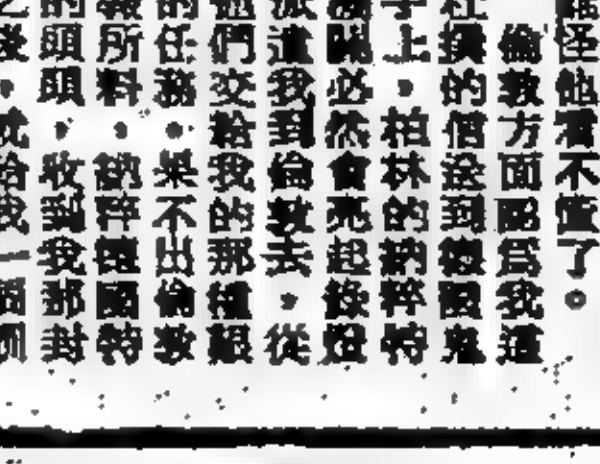 怪他看不懂了。
倫敦方面認爲我這
的信送到德國鬼
子上，柏林的納粹特
必然會亮起綠燈
派遣我到倫敦去，從
他們交給我的那種艱
的任務，果不出倫敦
所料，納粹德國特
的頭頭，收到我那封
就給我一